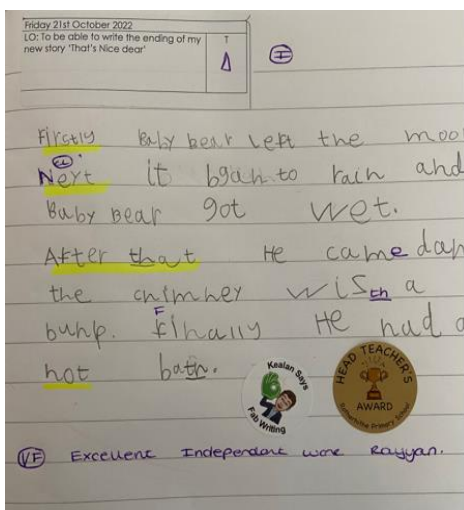 Friday 21st October 2022
LO: To be able to write the ending of my
new story 'That's Nice dear'
T
I
Firstly Baby bear left the moo
Next it bgan to rain and
Baby Bear got wet.
After that He came dan
the chimney wis th a
bump. Finally He had a
hot bath.
Kealan Says
Fab Writing
HEAD TEACHER'S
AWARD
Primary School
VF Excellent Independent work Rayyan.